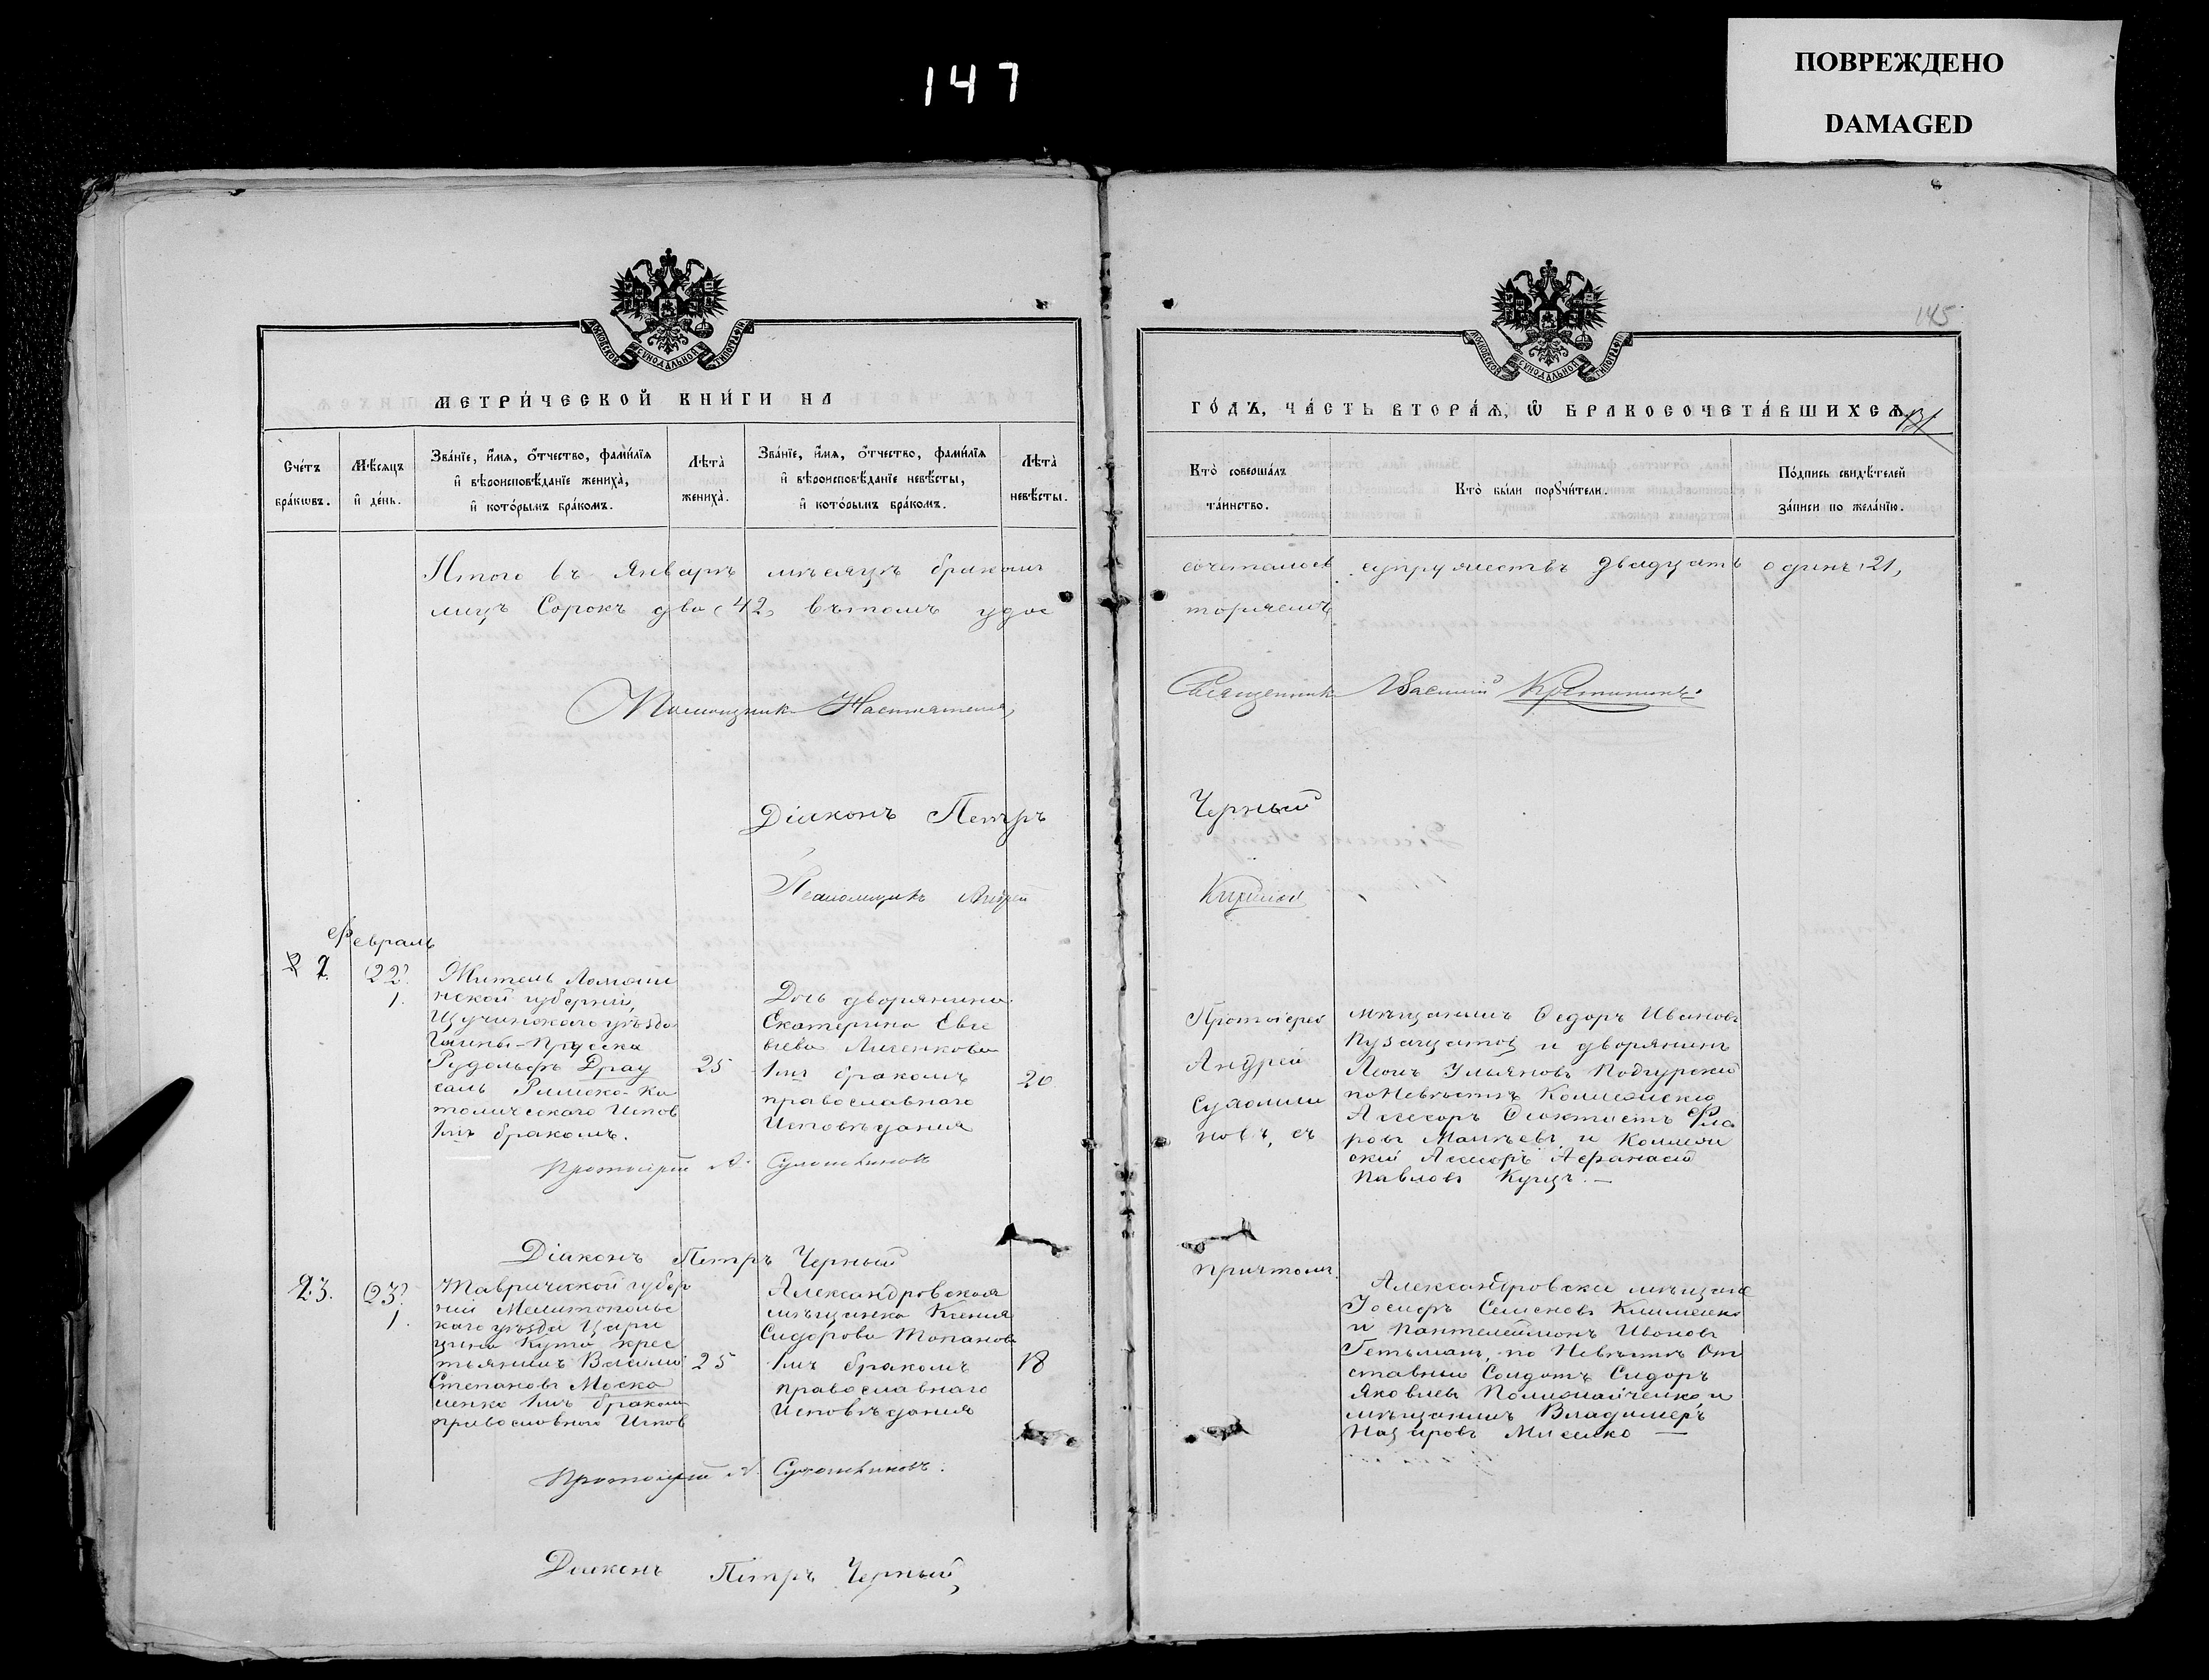 147
ПОВРЕЖДЕНО
DAMAGED
145
МОСКОВСКОЙ СѴНОДАЛЬНОЙ ТИПОГРАФІИ
МЕТРИ́ЧЕСКОЙ КНИ́ГИ НА
Сче́тъ бра́кѡвъ.
Мѣ́сяцъ и҆ де́нь.
Зва́нїе, и҆́мѧ, ѻ҆́тчество, фами́лїѧ
и҆ вѣроисповѣ́данїе жениха̀,
и҆ кото́рымъ бра́комъ.
Лѣта̀ жениха̀.
Зва́нїе, и҆́мѧ, ѻ҆́тчество, фами́лїѧ
и҆ вѣроисповѣ́данїе невѣ́сты,
и҆ кото́рымъ бра́комъ.
Лѣта̀ невѣ́сты.
Итого въ Январѣ мѣсяцѣ бракомъ
лицъ Сорокъ два (42) вътомъ удос
Помощникъ Настоятеля,
Діаконъ Петръ
Псаломщикъ Андрей
Февраль
22.
1.
Житель Ломжин
нской губерніи,
Щучинскаго уѣзда
Гмины-
Рудольфъ Драу
саль Римско-Ка
толическаго Испов
1мъ бракомъ.
25
Дочь дворянина
Екатерина Евге
ніева Лисенкова
1мъ бракомъ
православнаго
Исповѣданія
20.
Протоіерей А.
Діаконъ Петръ Черный
23.
23
1.
Таврической губер
ніи Мелитопольс
каго уѣзда Цари
цина Кута крес
тьянинъ Василій
Степановъ Моска
ленко 1мъ бракомъ
православнаго Испов
25
Александровская
мѣщанка Ксенія
Сидорова Топанова
1мъ бракомъ
православнаго
Исповѣданія
18
Протоіерей А.
Діаконъ Петръ Черный,
МОСКОВСКОЙ СѴНОДАЛЬНОЙ ТИПОГРАФІИ
ГО́ДЪ, ЧА́СТЬ ВТОРА́Ѧ, Ѽ БРАКОСОЧЕТА́ВШИХСѦ.
131
Кто̀ соверша́лъ
та́инство.
Кто̀ бы́ли порꙋчи́тели.
По́дпись свидѣ́телей
за́писи по жела́нїю.
сочеталось супружествъ двадцать одинъ 21,
торяемъ
Священникъ Василій
Черный
Протоіерей
Андрей
Сухомли
новъ, съ
мѣщанинъ Ѳедоръ Ивановъ
и дворянинъ
Леонъ Ульяновъ Подгурскій
поНевѣстѣ Коллежскій
Ассесоръ Ѳеоктистъ Фла
ровъ и Коллеж
скій Ассесоръ Аѳанасій
Павловъ Куцъ. —
причтомъ.
Александровскіе мѣщане
Іосифъ Семеновъ Клименко
и Пантелеймонъ Ивановъ
Гетьманъ, по Невѣстѣ От
ставный Солдатъ Сидоръ
Яковлевъ и
мѣщанинъ Владимеръ
Назаровъ Мисенко —